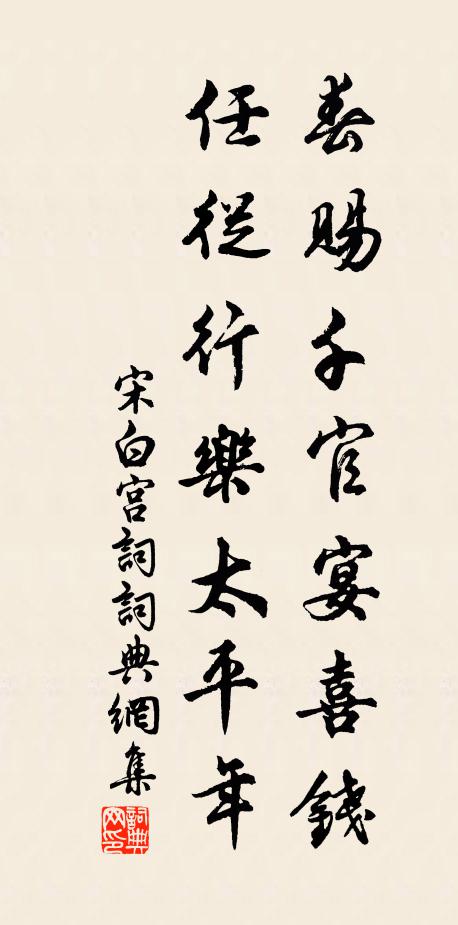 春賜千官宴喜錢
任從行樂太平年
宋白宮詞詞典網集
詞典網印